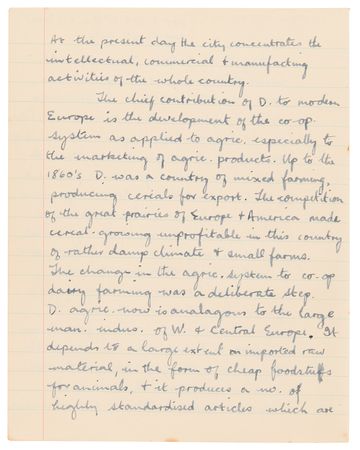 At the present day the city concentrates the
intellectual, commercial & manufacting
activities of the whole country.
The chief contribution of D. to modern
Europe is the development of the co-op.
system as applied to agric. especially to
the marketing of agric. products. Up to the
1860's D. was a country of mixed farming,
producing cerials for export. The competition
of the great prairies of Europe & America made
cereal-growing unprofitable in this country
of rather damp climate & small farms.
The change in the agric. system to co-op
dairy farming was a deliberate step.
D. agric. now is analagous to the large
man. indus. of W. & Central Europe. It
depends to a large extent on imported raw
material, in the form of cheap foodstuffs
for animals, & it produces a no. of
highly standardised articles which are